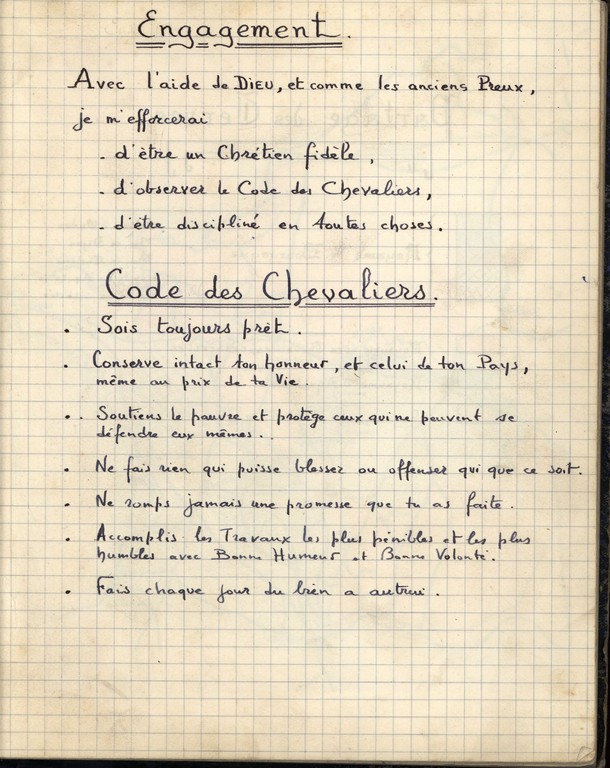 Engagement.
Avec l'aide de DIEU, et comme les anciens Preux,
je m'efforcerai
- d'être un Chrétien fidèle,
- d'observer le Code des Chevaliers,
- d'être discipliné en toutes choses.
Code des Chevaliers.
• Sois toujours prêt.
• Conserve intact ton honneur, et celui de ton Pays,
même au prix de ta Vie.
• Soutiens le pauvre et protège ceux qui ne peuvent se
défendre eux mêmes..
• Ne fais rien qui puisse blesser ou offenser qui que ce soit.
• Ne romps jamais une promesse que tu as faite.
• Accomplis les Travaux les plus pénibles et les plus
humbles avec Bonne Humeur et Bonne Volonté.
• Fais chaque jour du bien a autrui.